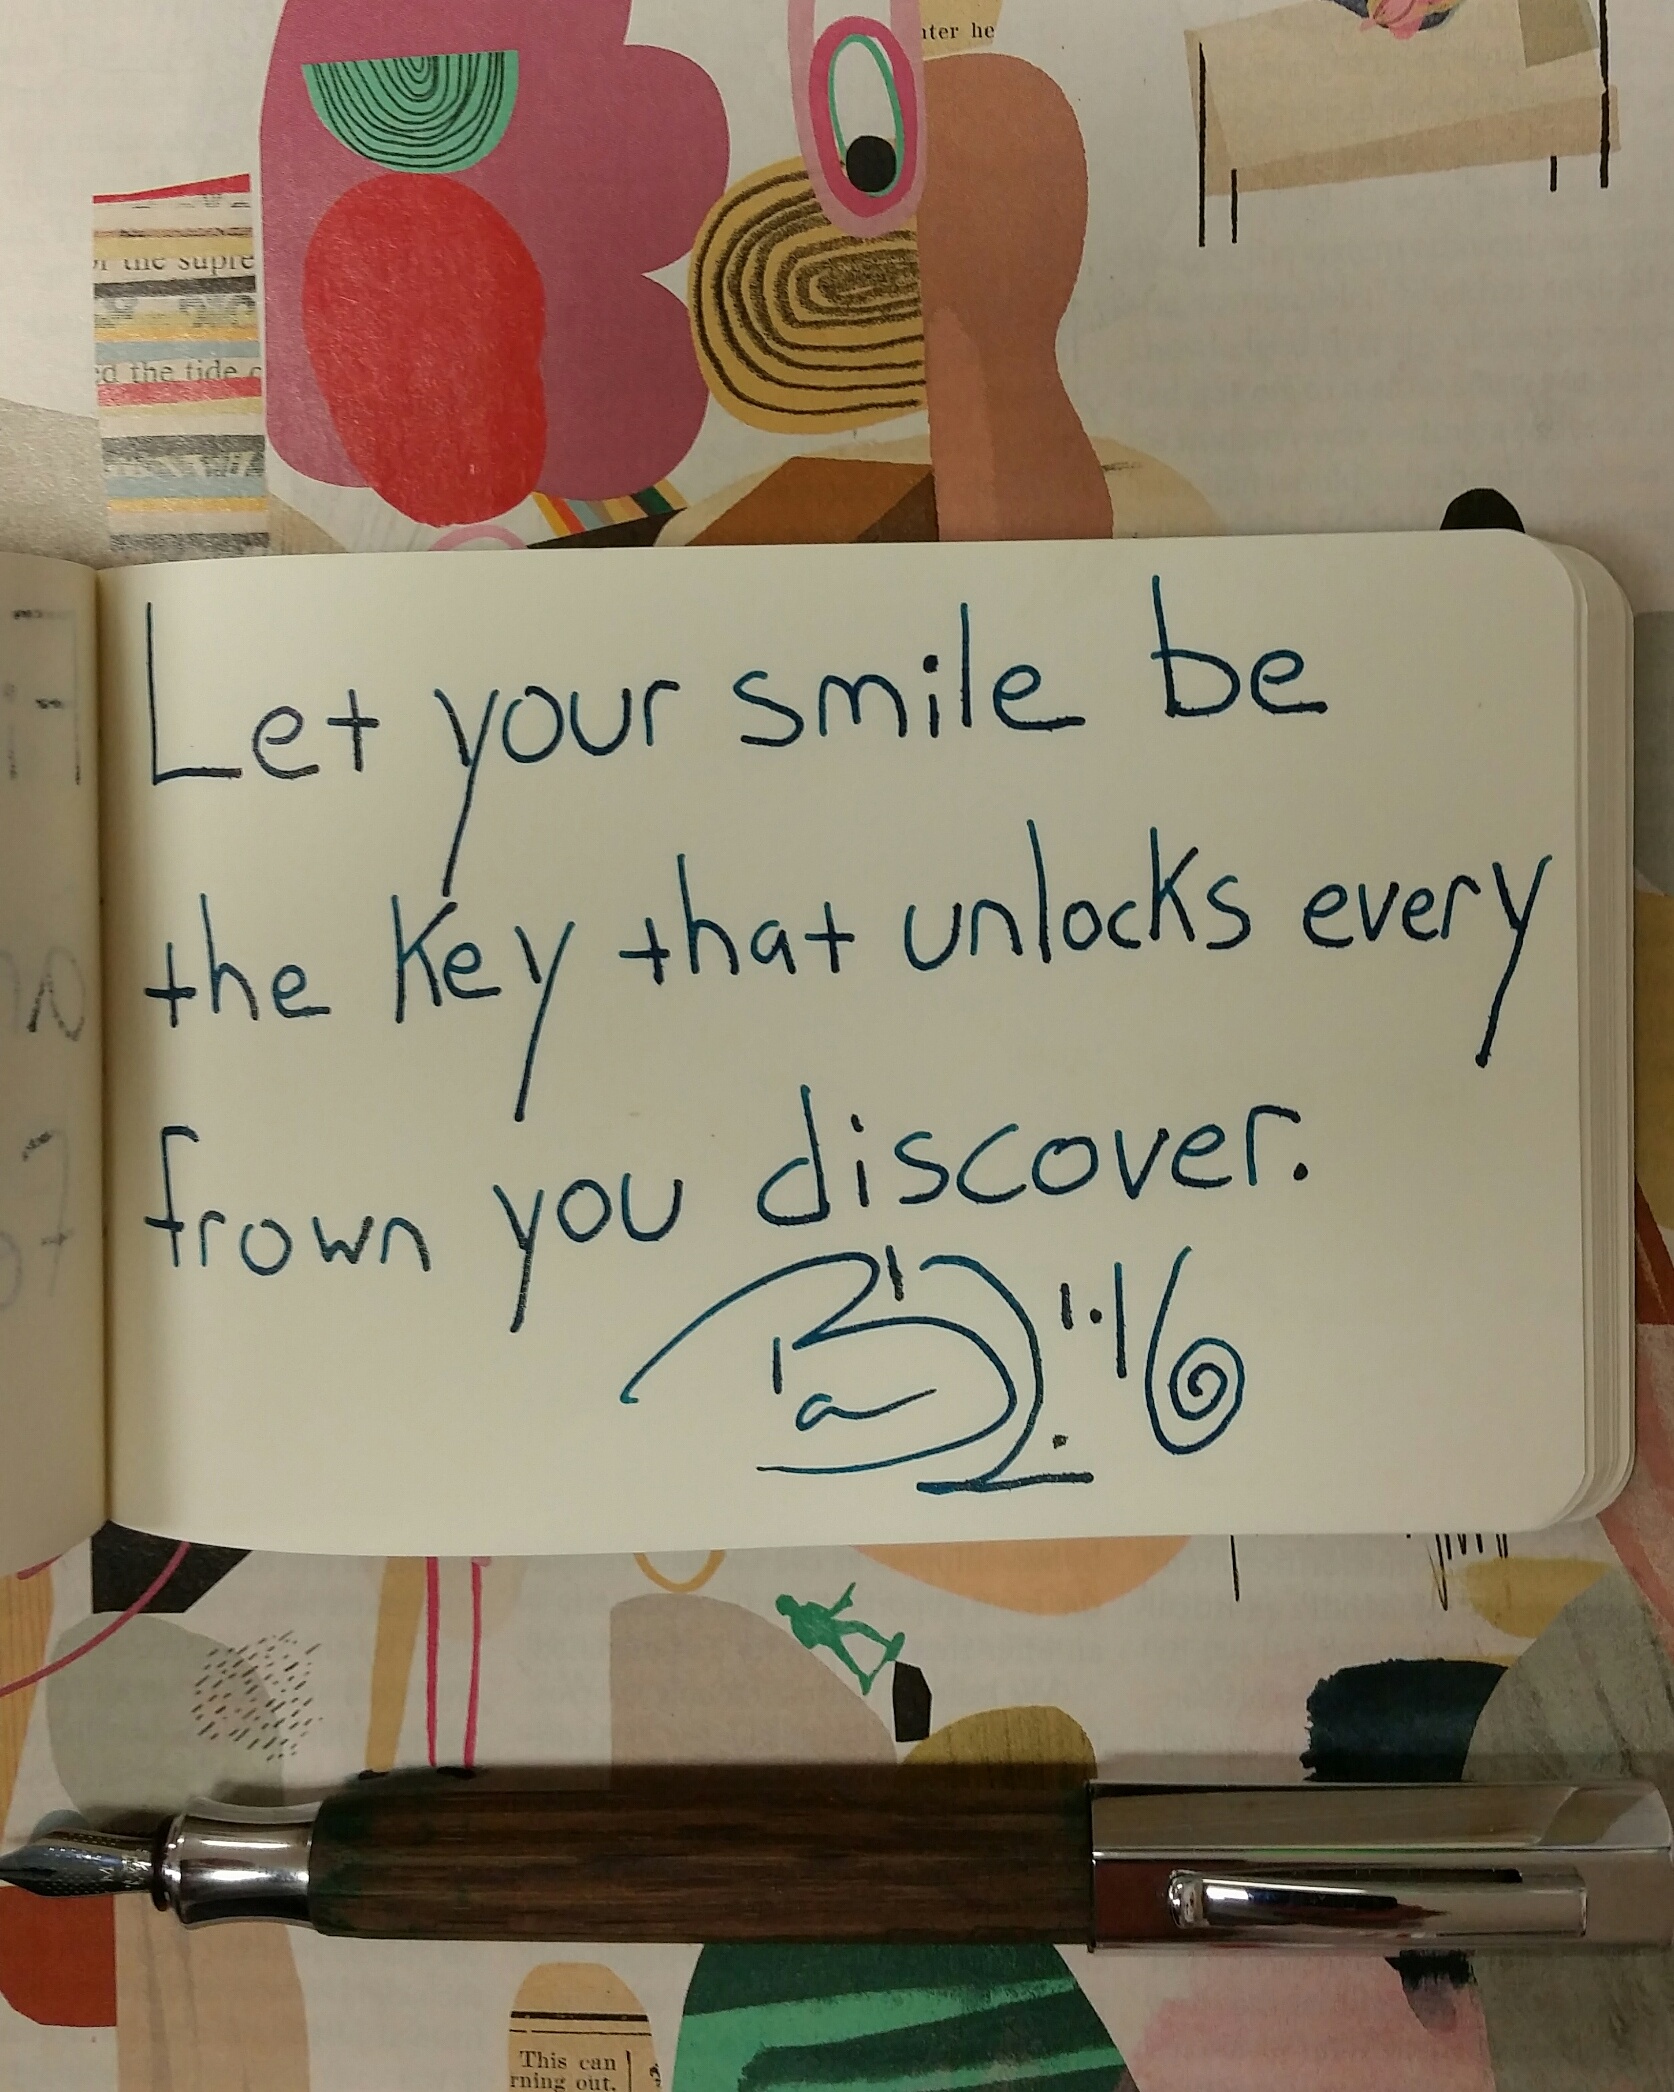 nter he
of the supre
ed the tide c
Let your smile be
the key that unlocks every
frown you discover.
This can
rning out.